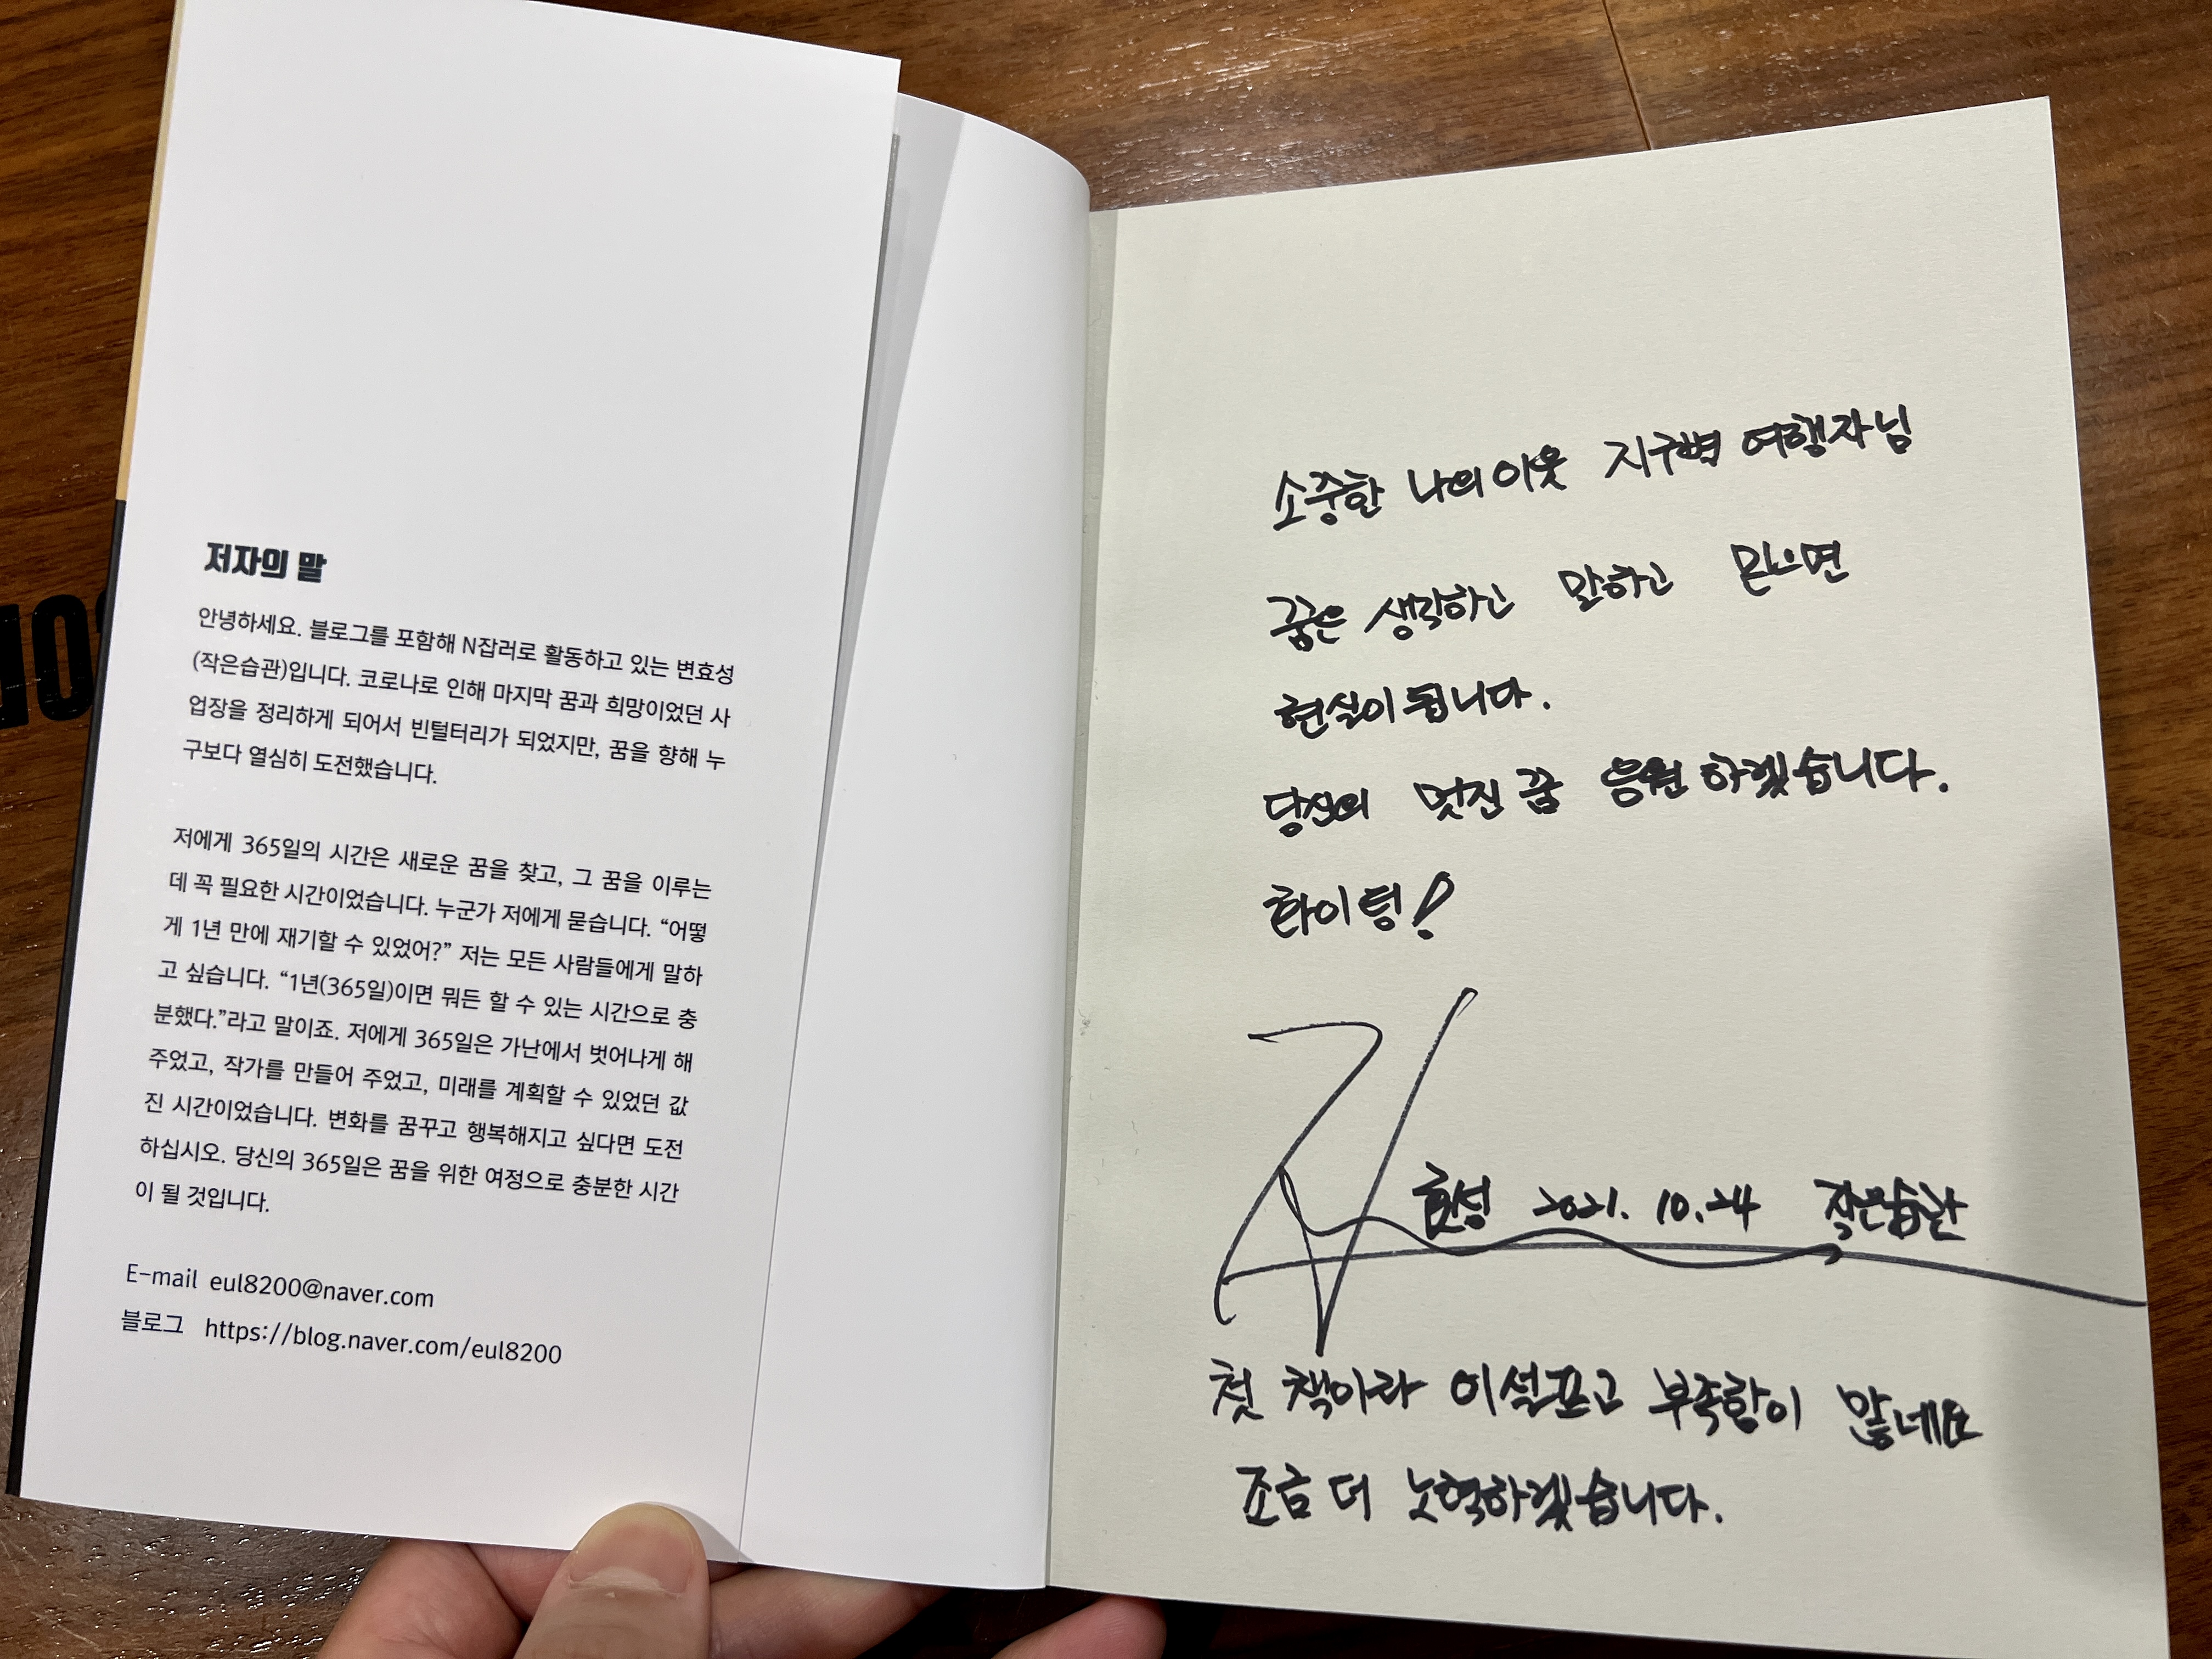 저자의 말
안녕하세요. 블로그를 포함해 N잡러로 활동하고 있는 변효성
(작은습관)입니다. 코로나로 인해 마지막 꿈과 희망이었던 사
업장을 정리하게 되어서 빈털터리가 되었지만, 꿈을 향해 누
구보다 열심히 도전했습니다.
저에게 365일의 시간은 새로운 꿈을 찾고, 그 꿈을 이루는
데 꼭 필요한 시간이었습니다. 누군가 저에게 묻습니다. “어떻
게 1년 만에 재기할 수 있었어?” 저는 모든 사람들에게 말하
고 싶습니다. “1년(365일)이면 뭐든 할 수 있는 시간으로 충
분했다.”라고 말이죠. 저에게 365일은 가난에서 벗어나게 해
주었고, 작가를 만들어 주었고, 미래를 계획할 수 있었던 값
진 시간이었습니다. 변화를 꿈꾸고 행복해지고 싶다면 도전
하십시오. 당신의 365일은 꿈을 위한 여정으로 충분한 시간
이 될 것입니다.
E-mail eul8200@naver.com
블로그 https://blog.naver.com/eul8200
소중한 나의 이웃 지구별 여행자님
꿈은 생각하고 말하고 믿으면
현실이 됩니다.
당신의 멋진 꿈 응원하겠습니다.
화이팅!
효성 2021. 10. 24 작은습관
첫 책이라 어설프고 부족함이 많네요
조금 더 노력하겠습니다.